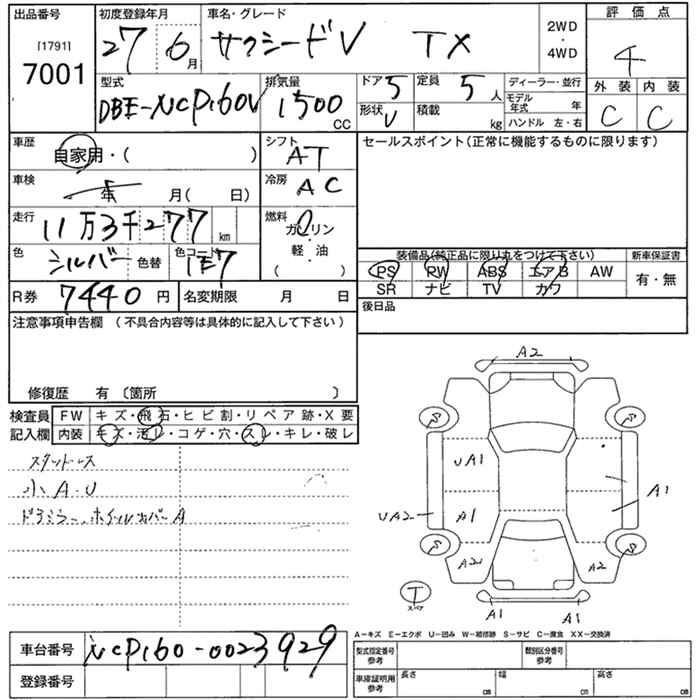 出品番号
[1791]
7001
初度登録年月
27 6月
車名・グレード
サクシードV TX
2WD
・
4WD
評価点
4
外装 内装
C C
型式
DBE-NCP160V
排気量
1500 CC
ドア 5
定員 5 人
形状 V
積載 kg
ディーラー・並行
モデル年式 年
ハンドル 左・右
車歴
自家用・( )
シフト
AT
車検
年 月( 日)
冷房
AC
走行
11万3千277 km
燃料
ガソリン
軽・油
( )
色
シルバー 色替
色コード
1E7
R券 7440円
名変期限 月 日
セールスポイント(正常に機能するものに限ります)
装備品(純正品に限り丸をつけて下さい)
PS PW ABS エアB AW
SR ナビ TV カワ
新車保証書
有・無
後日品
注意事項申告欄 (不具合内容等は具体的に記入して下さい)
修復歴 有〔箇所 〕
検査員
記入欄
FW キズ・飛石・ヒビ割・リペア跡・X要
内装 キズ・汚レ・コゲ・穴・スレ・キレ・破レ
スタッドレス
小A.U
ドアミラー、ホイルカバーA
A2
S S
UA1
A1
UA2
A1
S S
A2 A2
T
スペア
A1 A1
A-キズ E-エクボ U-凹み W-補修跡 S-サビ C-腐食 XX-交換済
車台番号 NCP160-0023929
登録番号
型式指定番号
参考
類別区分番号
参考
車庫証明用
参考
長さ cm
幅 cm
高さ cm